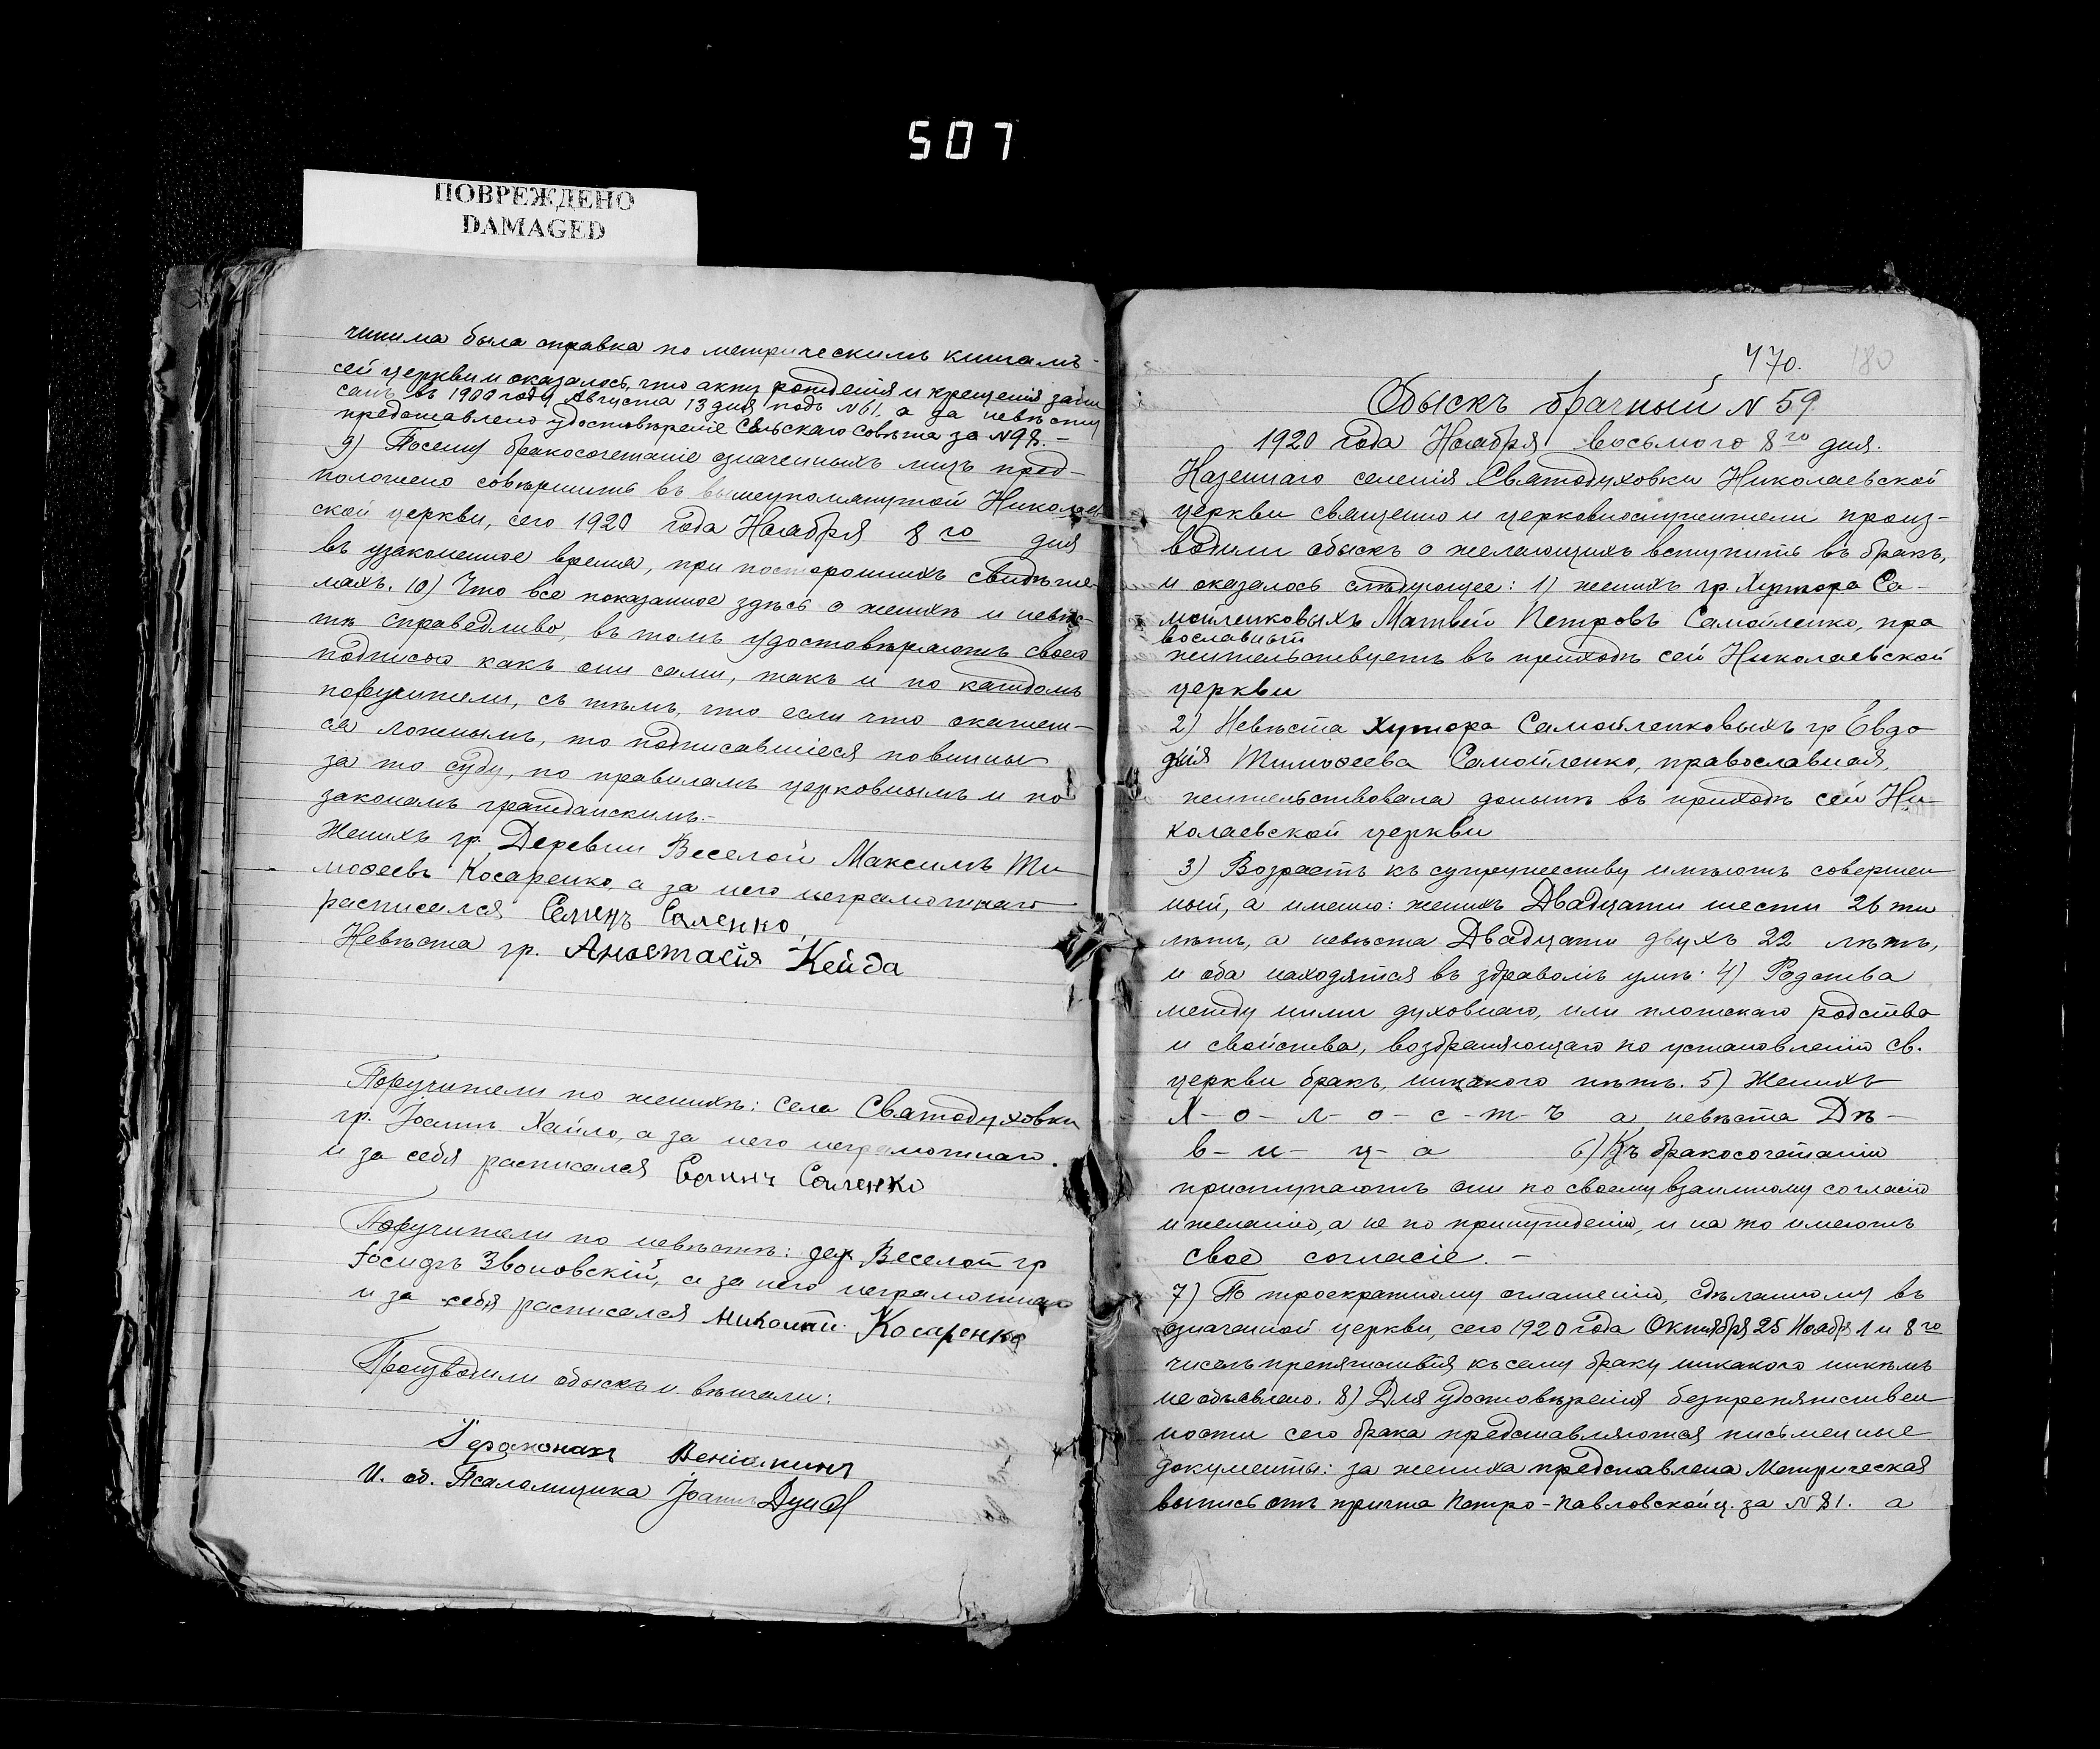 507
ПОВРЕЖДЕНО
DAMAGED
чинима была справка по метрическимъ книгамъ
сей церкви и оказалось, что актъ рожденія и крещенія запи
санъ въ 1900 году Августа 13 дня подъ №61. а за невѣсту
предоставлено удостовѣреніе Сельскаго Совѣта за №98. –
9) Посему бракосочетаніе означенныхъ лицъ пред-
положено совершить въ вышеупомянутой Николаев
ской церкви, сего 1920 года Ноября 8 го дня
въ узаконенное время, при постороннихъ свидѣте-
ляхъ. 10) Что все показанное здѣсь о женихѣ и невѣс-
тѣ справедливо, въ томъ удостовѣряютъ своею
подписью какъ они сами, такъ и по каждомъ
поручители, съ тѣмъ, что если что окажет-
ся ложнымъ, то подписавшіеся повинны
за то суду, по правиламъ церковнымъ и по
законамъ гражданскимъ.–
Женихъ гр. Деревни Веселой Максимъ Ти
мофеевъ Косаренко, а за него неграмотнаго
расписался Семенъ Саленко,
Невѣста гр. Анастасія Кейда
Поручители по женихѣ: села Святодуховки
гр. Іоаннъ Хайло, а за него неграмотнаго
и за себя расписался Саленко
Поручители по невѣстѣ: дер. Веселой гр
Іосифъ Звоновскій, а за него неграмотнаго
и за себя расписался Николай Косаренко
Производили обыскъ и вѣнчали:
Іеромонахъ Веніаминъ
И. об. Псаломщика Іоаннъ
470. 180
Обыскъ брачный № 59
1920 года Ноября восьмого 8го дня.
Казеннаго селенія Святодуховки Николаевской
церкви священно и церковнослужители произ-
водили обыскъ о желающихъ вступить въ бракъ,
и оказалось слѣдующее: 1) женихъ гр. Хутора Са-
мойленковыхъ Матвѣй Петровъ Самойленко, пра
вославный
жительствуетъ въ приходѣ сей Николаевской
церкви
2) Невѣста хутора Самойленковыхъ гр Евдо
кія Тимофеева Самойленко, православная,
жительствовала донынѣ въ приходѣ сей Ни-
колаевской церкви
3) Возрастъ къ супружеству имѣютъ совершен
ный, а именно: женихъ Двадцати шести 26 ти
лѣтъ, а невѣста Двадцати двухъ 22 лѣтъ,
и оба находятся въ здравомъ умѣ. 4) Родства
между ними духовнаго, или плотскаго родства
и свойства, возбраняющаго по установленію св.
церкви бракъ, никакого нѣтъ. 5) Женихъ
Х- о- л- о- с- т- ъ а невѣста Дѣ-
в- и- ц- а 6) Къ бракосочетанію
приступаютъ они по своему взаимному согласію
и желанію, а не по принужденію, и на то имеютъ
свое согласіе. –
7) По троекратному оглашенію, сдѣланному въ
означенной церкви, сего 1920 года Октября 25 Ноября 1 и 8го
чиселъ препятствія къ сему браку никакого никѣмъ
не объявлено. 8) Для удостовѣренія безпрепятствен
ности сего брака представляются письменные
документы: за жениха представлена Метрическая
выпись отъ причта Петро-Павловской ц. за №81. а